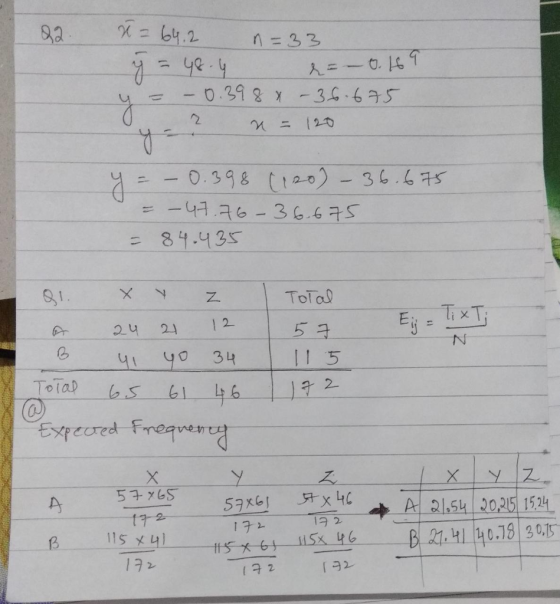 Q2. x̄ = 64.2 n = 33
ȳ = 48.4 r = -0.169
y = -0.398x - 36.675
y = ? x = 120
y = -0.398 (120) - 36.675
= -47.76 - 36.675
= 84.435
Q1. X Y Z Total
A 24 21 12 57
B 41 40 34 115
Total 65 61 46 172
Eij = Ti × Tj / N
(a)
Expected Frequency
X Y Z
A 57×65/172 57×61/172 57×46/172
B 115×41/172 115×61/172 115×46/172
X Y Z
A 21.54 20.215 15.24
B 27.41 40.78 30.75